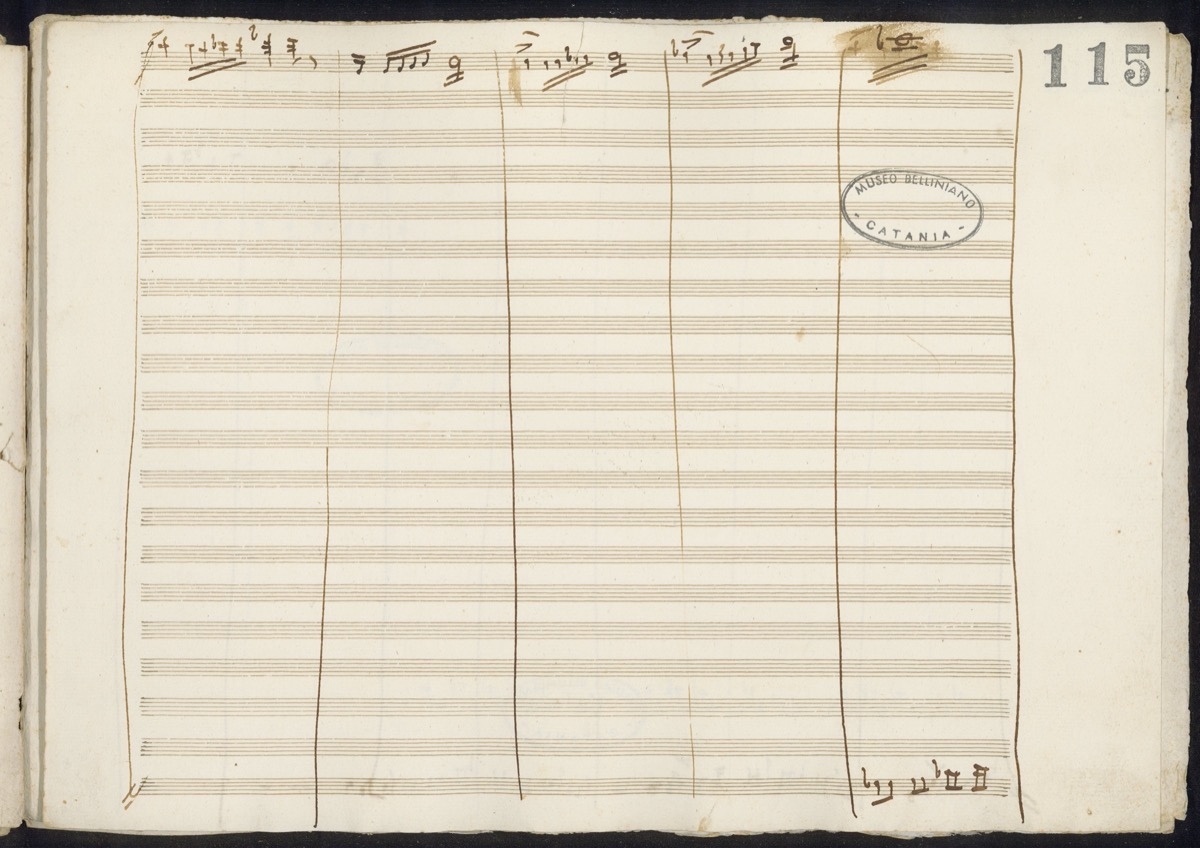 115
MUSEO BELLINIANO
- CATANIA -